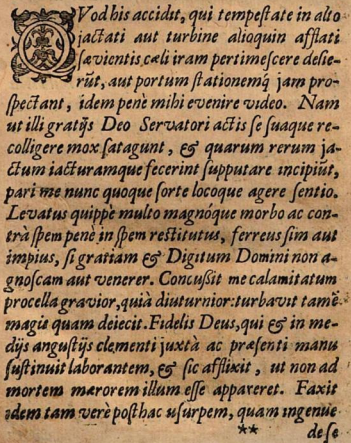 QVod his accidit, qui tempestate in alto
jactati aut turbine alioquin afflati
sævientis cæli iram pertimescere desie-
rũt, aut portum stationemq́; jam pro-
spectant, idem penè mihi evenire video. Nam
ut illi gratijs Deo Servatori actis se suaque re-
colligere mox satagunt, & quarum rerum ja-
ctum iacturamque fecerint supputare incipiũt,
pari me nunc quoque sorte locoque agere sentio.
Levatus quippè multo magnóque morbo ac con-
trà spem penè in spem restitutus, ferreus sim aut
impius, si gratiam & Digitum Domini non a-
gnoscam aut venerer. Concussit me calamitatum
procella gravior, quià diuturnior: turbavit tamẽ
magis quam deiecit. Fidelis Deus, qui & in me-
dijs angustijs clementi juxtà ac præsenti manu
sustinuit laborantem, & sic afflixit, ut non ad
mortem mærorem illum esse appareret. Faxit
idem tam verè posthac usurpem, quam ingenuè
** de se